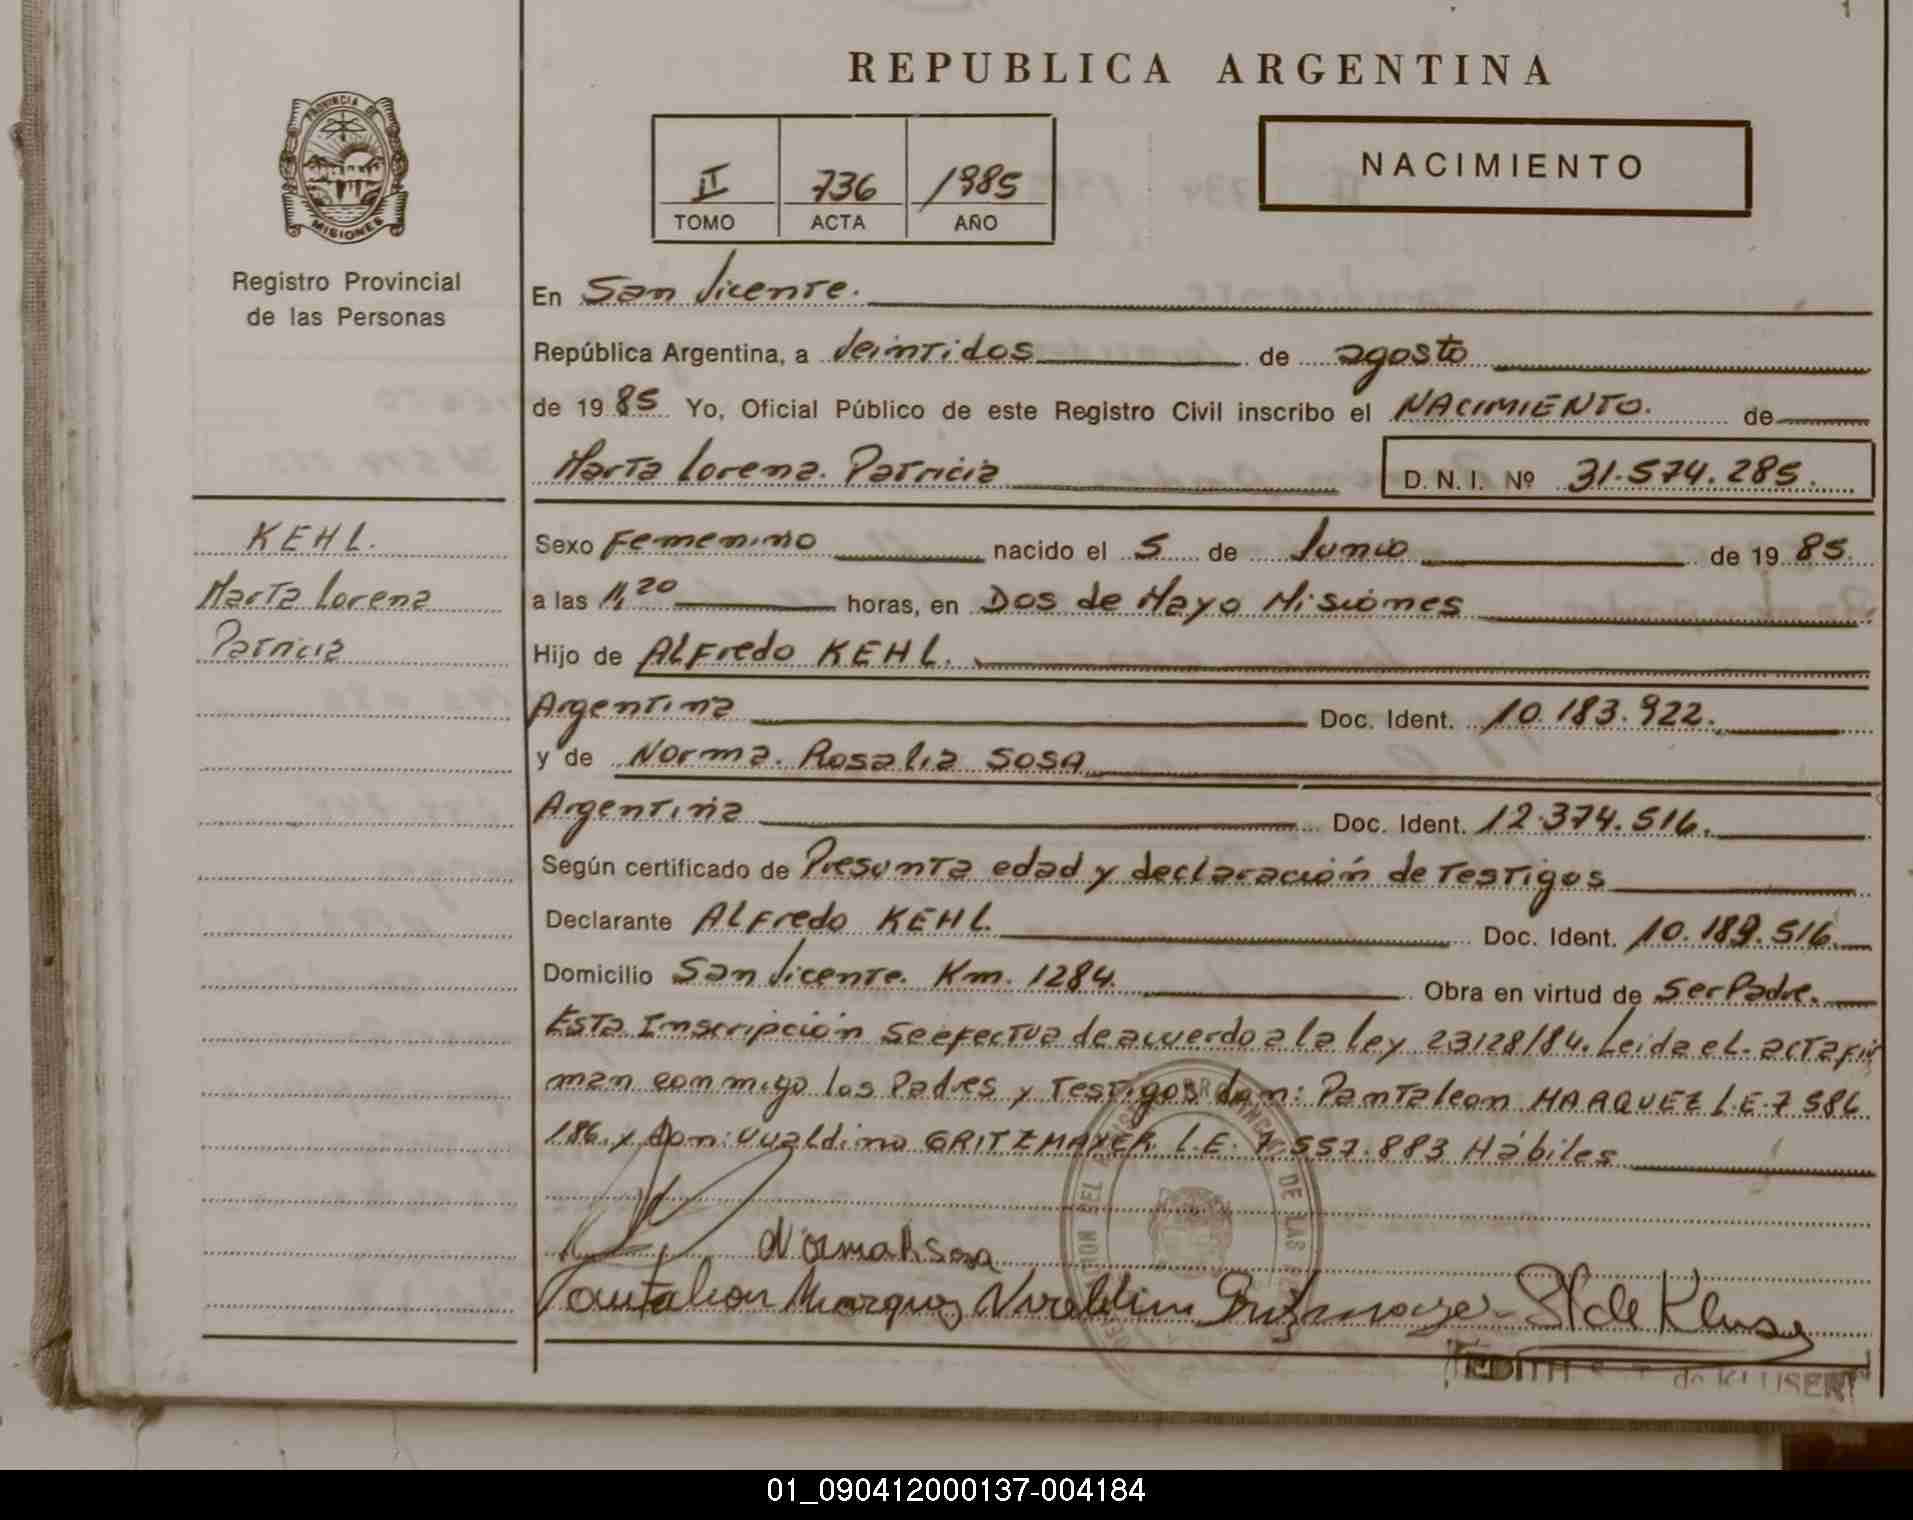 1
REPUBLICA ARGENTINA
PROVINCIA DE
MISIONES
II 736 1985
TOMO ACTA AÑO
NACIMIENTO
Registro Provincial
de las Personas
En San Vicente.
República Argentina, a Veintidos de agosto
de 1985 Yo, Oficial Público de este Registro Civil inscribo el NACIMIENTO. de
Marta Lorena. Patricia D. N. I. Nº 31.574.285.
KEHL.
Marta Lorena
Patricia
Sexo Femenino nacido el 5 de Junio de 1985.
a las 11,20 horas, en Dos de Mayo Misiones
Hijo de ALFredo KEHL.
Argentina Doc. Ident. 10.183.922.
y de Norma. Rosalia SOSA
Argentina Doc. Ident. 12.374.516.
Según certificado de Presunta edad y declaración de Testigos
Declarante ALFredo KEHL. Doc. Ident. 10.189.516.
Domicilio San Vicente. Km. 1284. Obra en virtud de Ser Padre.
Esta Inscripción se efectua de acuerdo a la ley 23128/84. Leida el. acta fir
man conmigo los Padres y Testigos don: Pantaleon MARQUEZ L.E. 7 586
186. y don: Uualdino GRITZMAYER L.E. 7.557.883 Hábiles
Norma R Sosa
Pantaleon Marquez
EDITH de KLUSENER
01_090412000137-004184